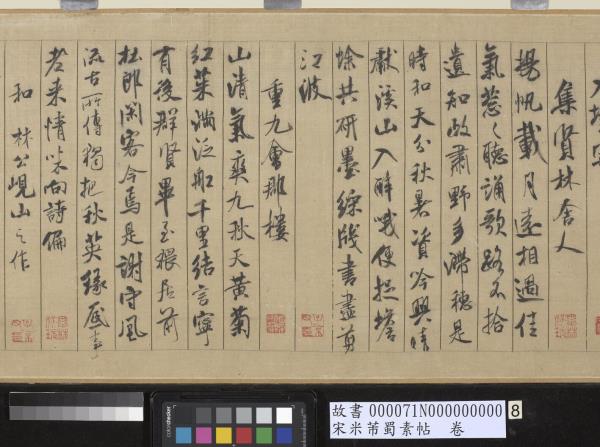 入境寄
集賢林舍人
揚帆載月遠相過佳
氣蔥〻聽誦歌路不拾
遺知政肅野多滯穗是
時和天分秋暑資吟興晴
獻溪山入醉哦便捉蟾
蜍共研墨綵牋書盡剪
江波
重九會郡樓
山清氣爽九秋天黃菊
紅茱滿泛船千里結言寧
有後群賢畢至猥居前
杜郎閑客今焉是謝守風
流古所傳獨把秋英緣底事
老來情味向詩偏
和林公峴山之作
故書 000071N000000000 8
宋米芾蜀素帖 卷